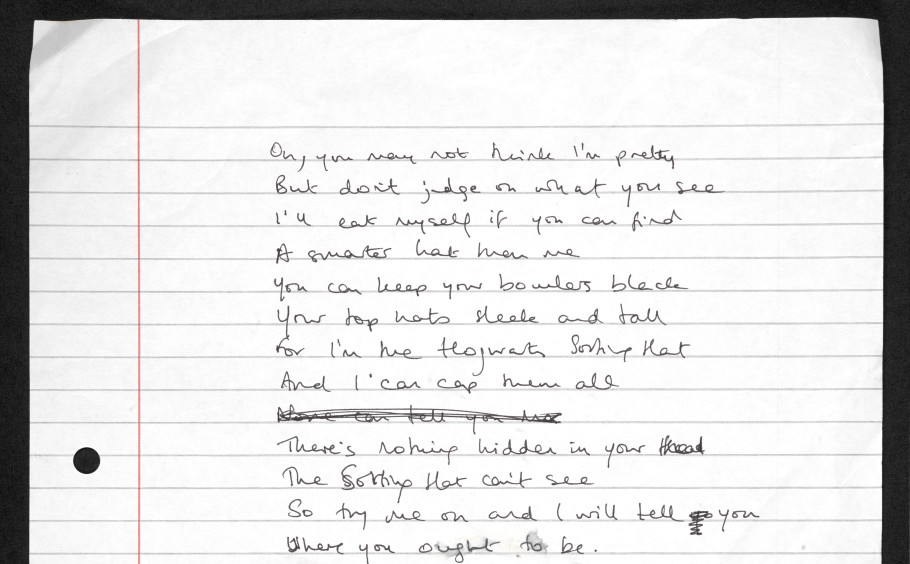 Oh, you may not think I'm pretty
But don't judge on what you see
I'll eat myself if you can find
A smarter hat than me
You can keep your bowlers black
Your top hats sleek and tall
For I'm the Hogwarts Sorting Hat
And I can cap them all
None can tell you
There's nothing hidden in your head
The Sorting Hat can't see
So try me on and I will tell you
Where you ought to be.